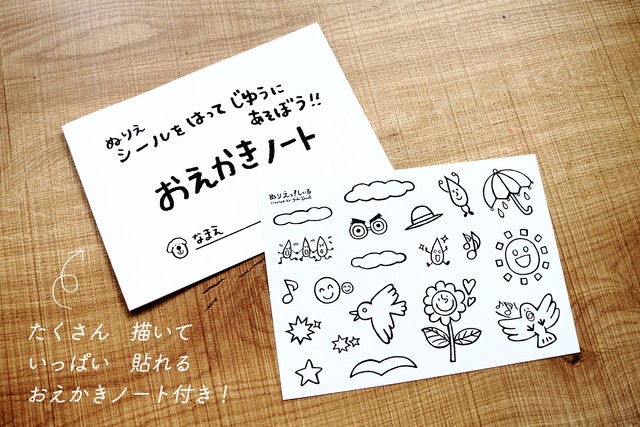 ぬりえ
シールをはって じゆうに
あそぼう!!
おえかきノート
なまえ
ぬりえっ!しぃる
たくさん 描いて
いっぱい 貼れる
おえかきノート付き!